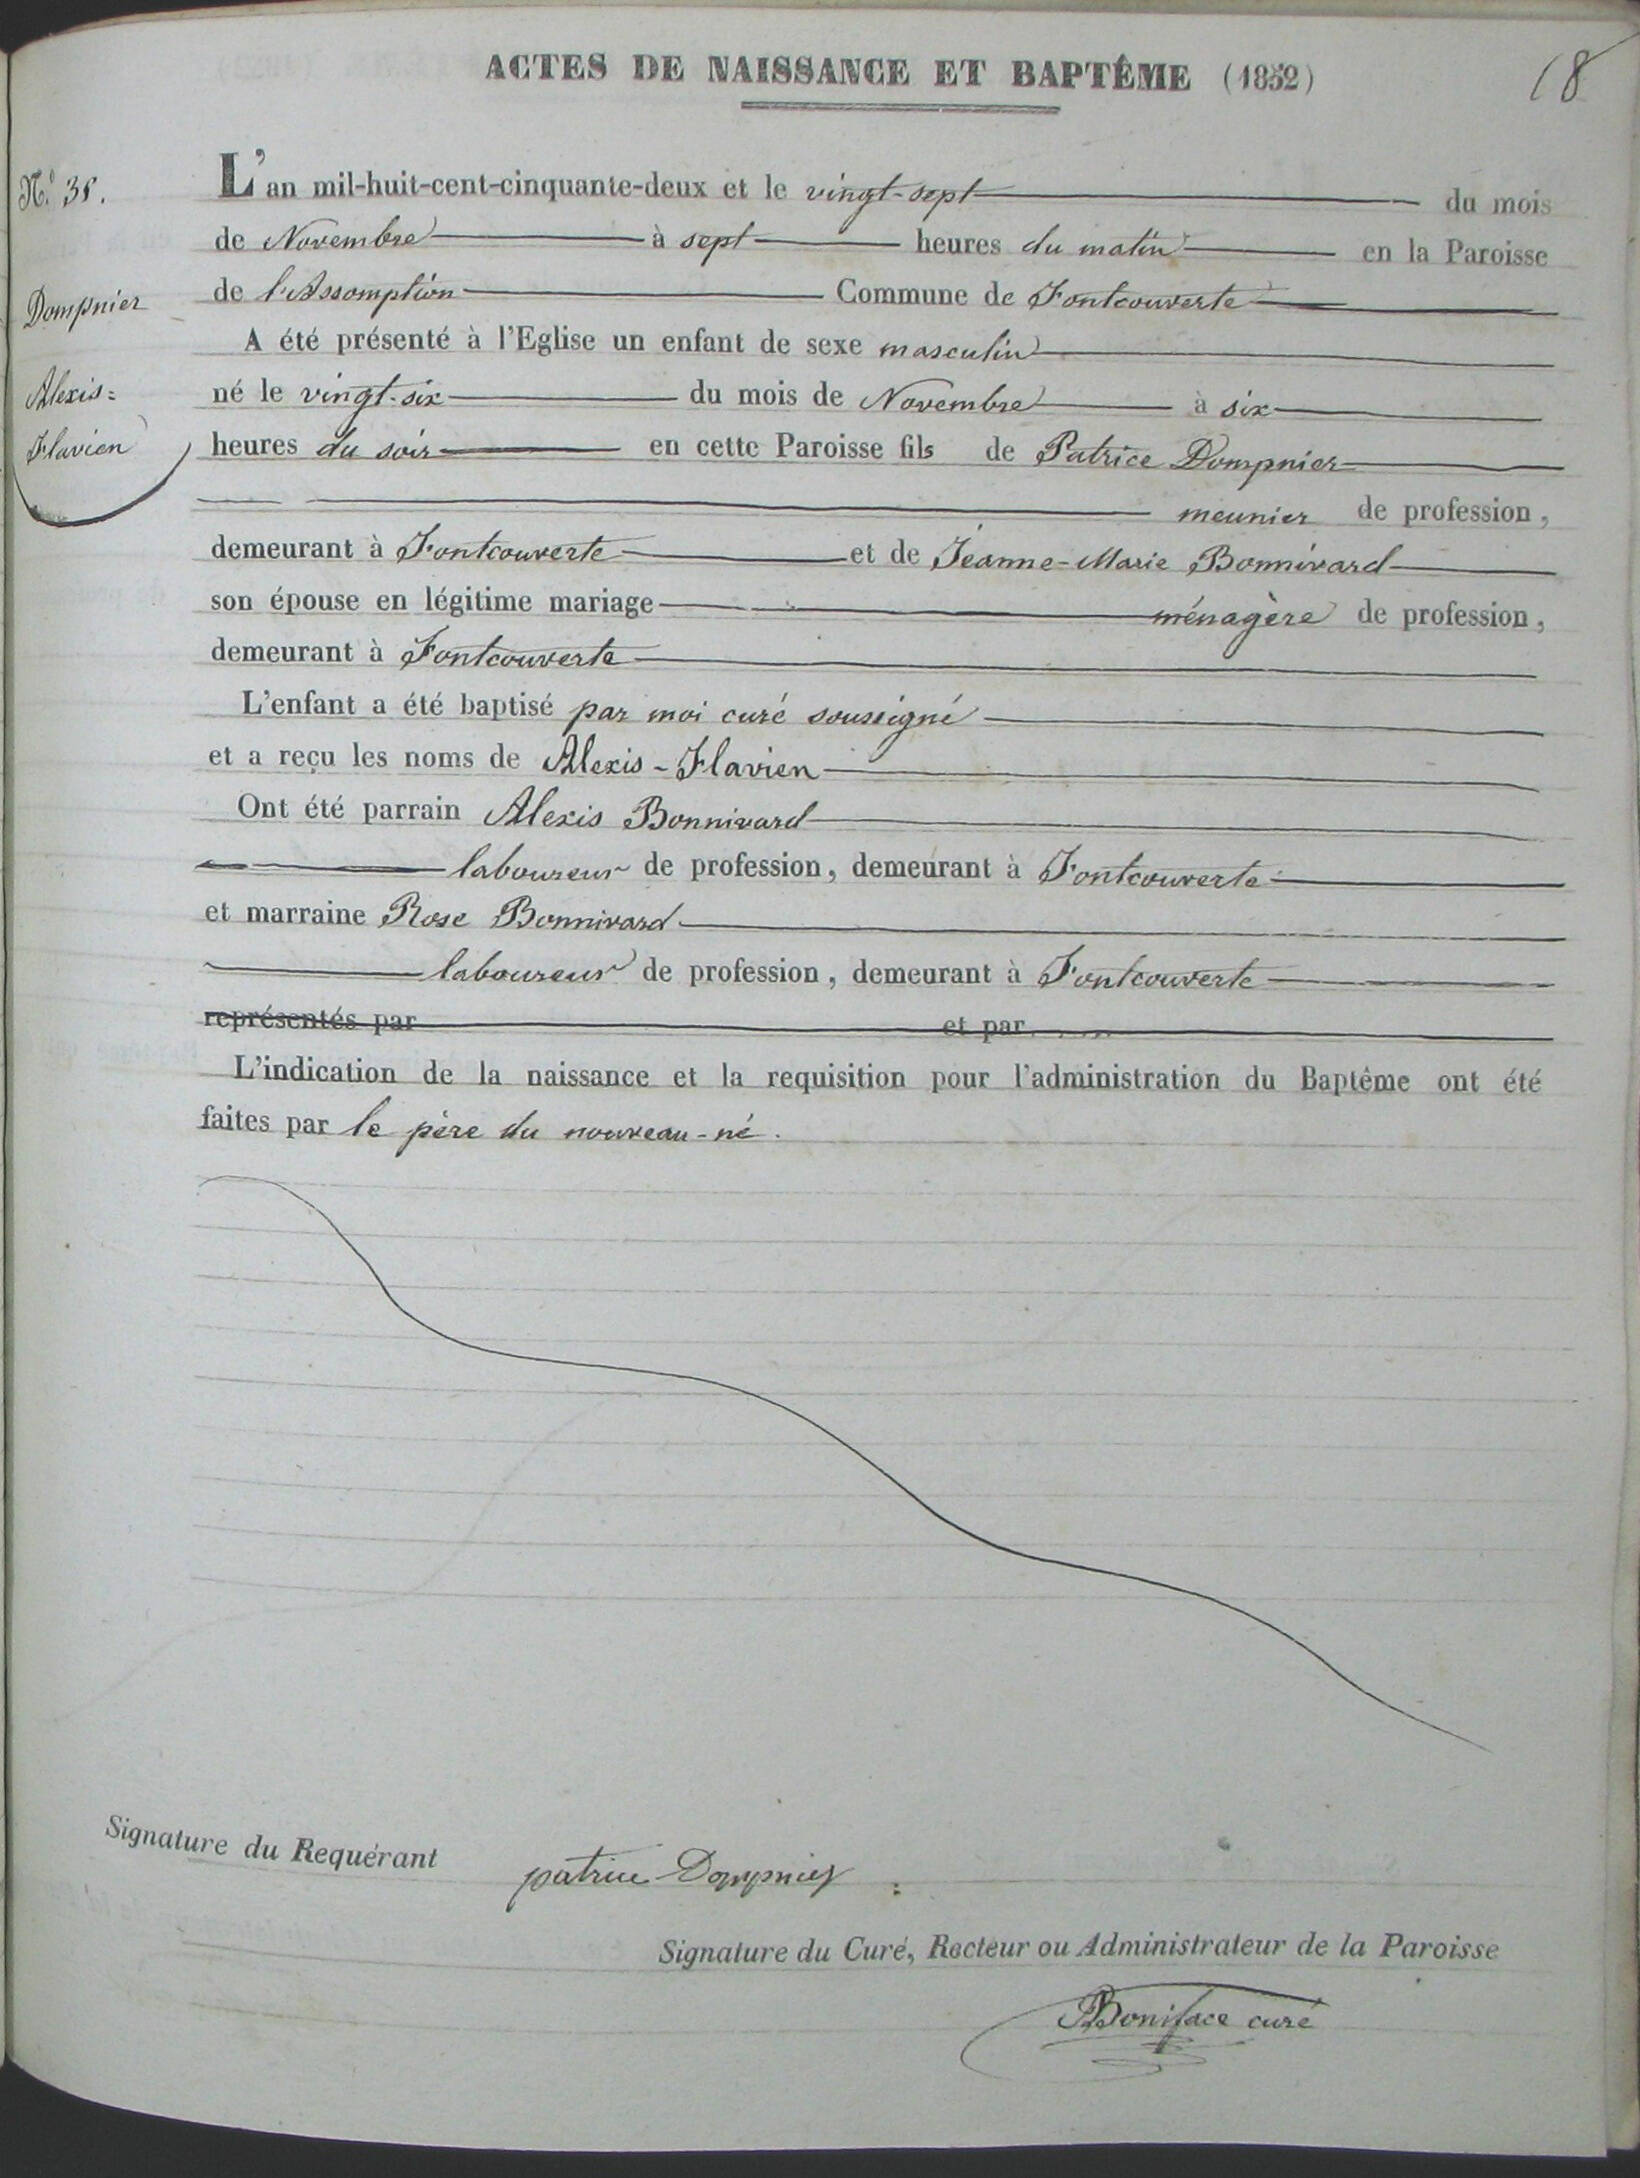 ACTES DE NAISSANCE ET BAPTÊME (1852)
18
N.º 35.
Dompnier
Alexis=
Flavien
L'an mil-huit-cent-cinquante-deux et le vingt-sept du mois
de Novembre à sept heures du matin en la Paroisse
de l'Assomption Commune de Fontcouverte
A été présenté à l'Eglise un enfant de sexe masculin
né le vingt-six du mois de Novembre à six
heures du soir en cette Paroisse fils de Patrice Dompnier
meunier de profession,
demeurant à Fontcouverte et de Jeanne-Marie Bonnivard
son épouse en légitime mariage ménagère de profession,
demeurant à Fontcouverte
L'enfant a été baptisé par moi curé soussigné
et a reçu les noms de Alexis-Flavien
Ont été parrain Alexis Bonnivard
laboureur de profession, demeurant à Fontcouverte
et marraine Rose Bonnivard
laboureur de profession, demeurant à Fontcouverte
représentés par et par
L'indication de la naissance et la requisition pour l'administration du Baptême ont été
faites par le père du nouveau-né.
Signature du Requérant patrice Dompnier
Signature du Curé, Recteur ou Administrateur de la Paroisse
Boniface curé